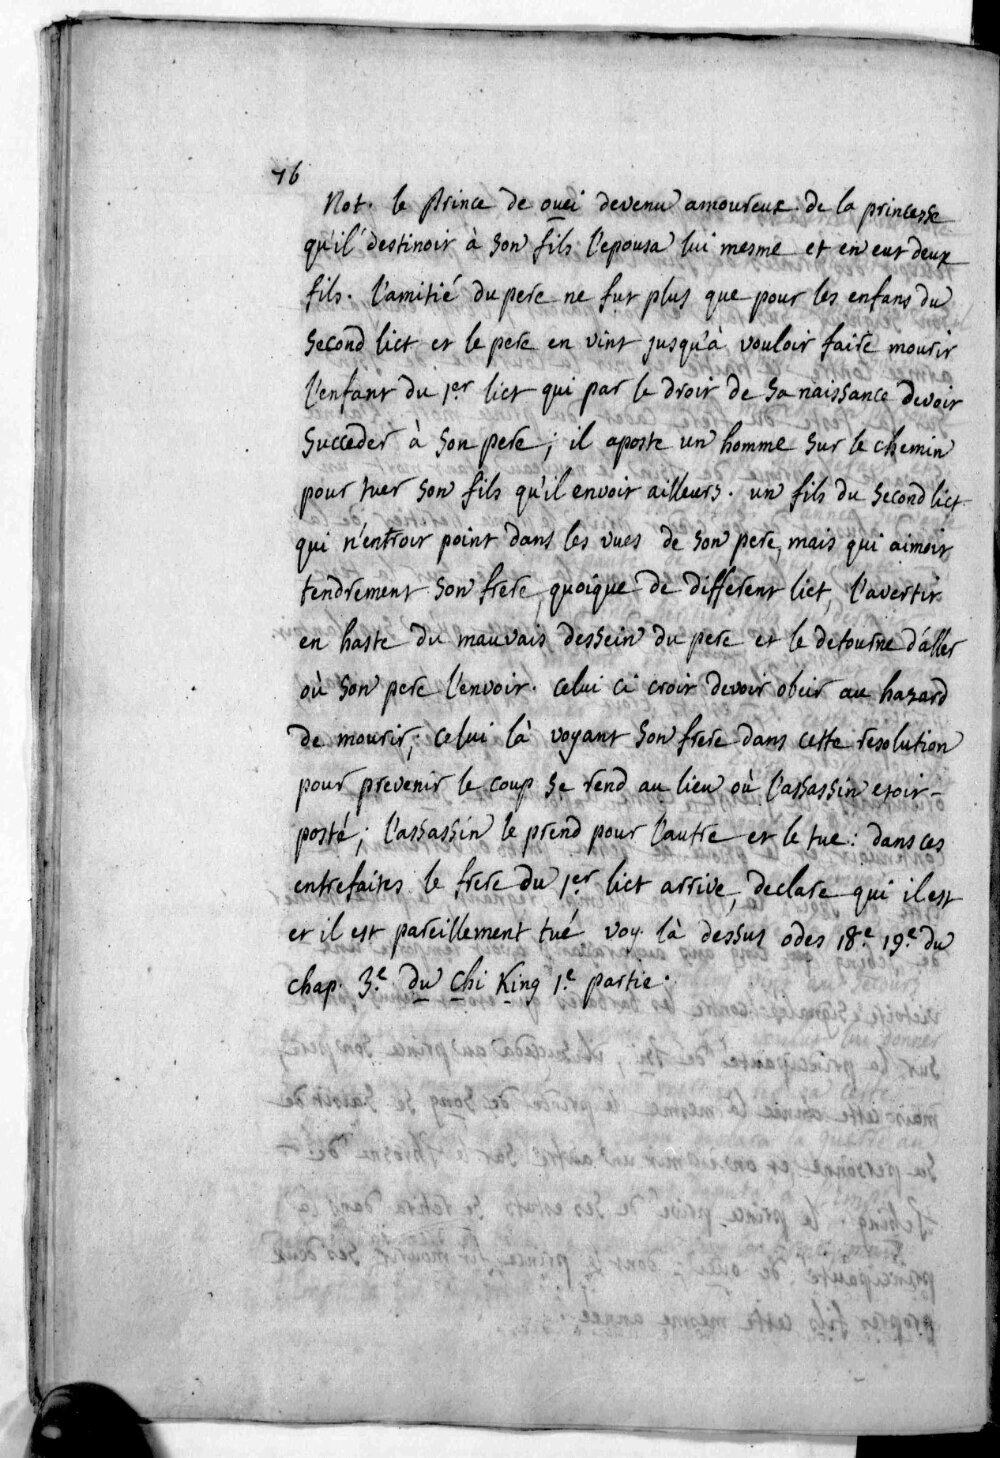 76
Not. le Prince de ouei devenu amoureux de la princesse
qu'il destinoit à son fils l'epousa lui mesme et en eut deux
fils. l'amitié du pere ne fut plus que pour les enfans du
second lict et le pere en vint jusqu'à vouloir faire mourir
l'enfant du 1er lict qui par le droit de sa naissance devoit
succeder à son pere; il aposte un homme sur le chemin
pour tuer son fils qu'il envoit ailleurs. un fils du second lict
qui n'entroit point dans les vues de son pere, mais qui aimoit
tendrement son frere, quoique de different lict, l'avertit
en haste du mauvais dessein du pere et le detourne d'aller
où son pere l'envoit. celui ci croit devoir obeir au hazard
de mourir; celui là voyant son frere dans cette resolution
pour prevenir le coup se rend au lieu où l'assassin etoit-
posté; l'assassin le prend pour l'autre et le tue: dans ces
entrefaites le frere du 1er lict arrive, declare qui il est
et il est pareillement tué voy. là dessus odes 18e. 19e. du
chap. 3e. du Chi King 1e. partie.